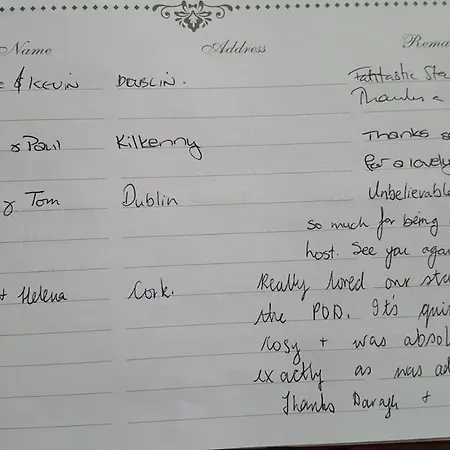 Name Address Rema
& KEVIN DUBLIN. Fantastic Sta
Thanks a
& Paul Kilkenny Thanks s
for a lovely
& Tom Dublin Unbelievable
so much for being
host. See you again
+ Helena Cork. Really loved our sta
the POD. It's qui
cosy + was absol
exactly as was ad
Thanks Daragh +